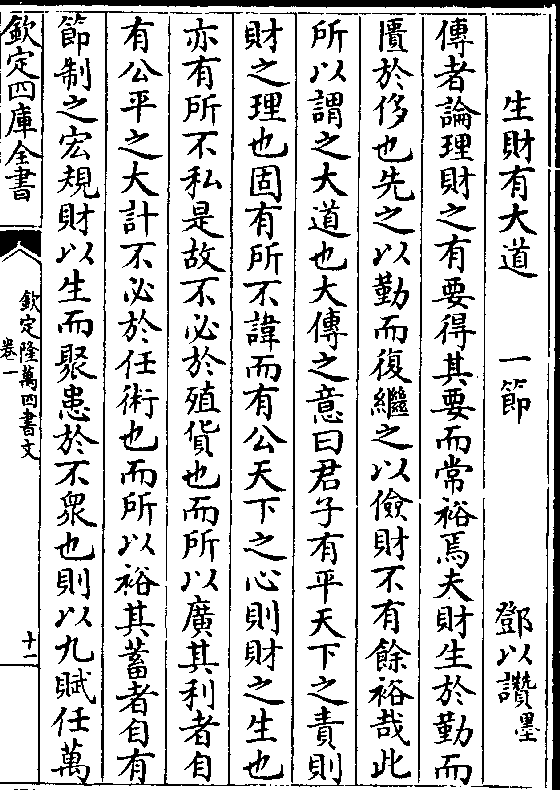 生財有大道　一節　鄧以讚墨
傳者論理財之有要得其要而常裕焉夫財生於勤而
匱於侈也先之以勤而復繼之以儉財不有餘裕哉此
所以謂之大道也大傳之意曰君子有平天下之責則
財之理也固有所不諱而有公天下之心則財之生也
亦有所不私是故不必於殖貨也而所以廣其利者自
有公平之大計不必於任術也而所以裕其蓄者自有
節制之宏規財以生而聚患於不衆也則以九賦任萬
欽定四庫全書
欽定隆萬四書文
卷一
十二